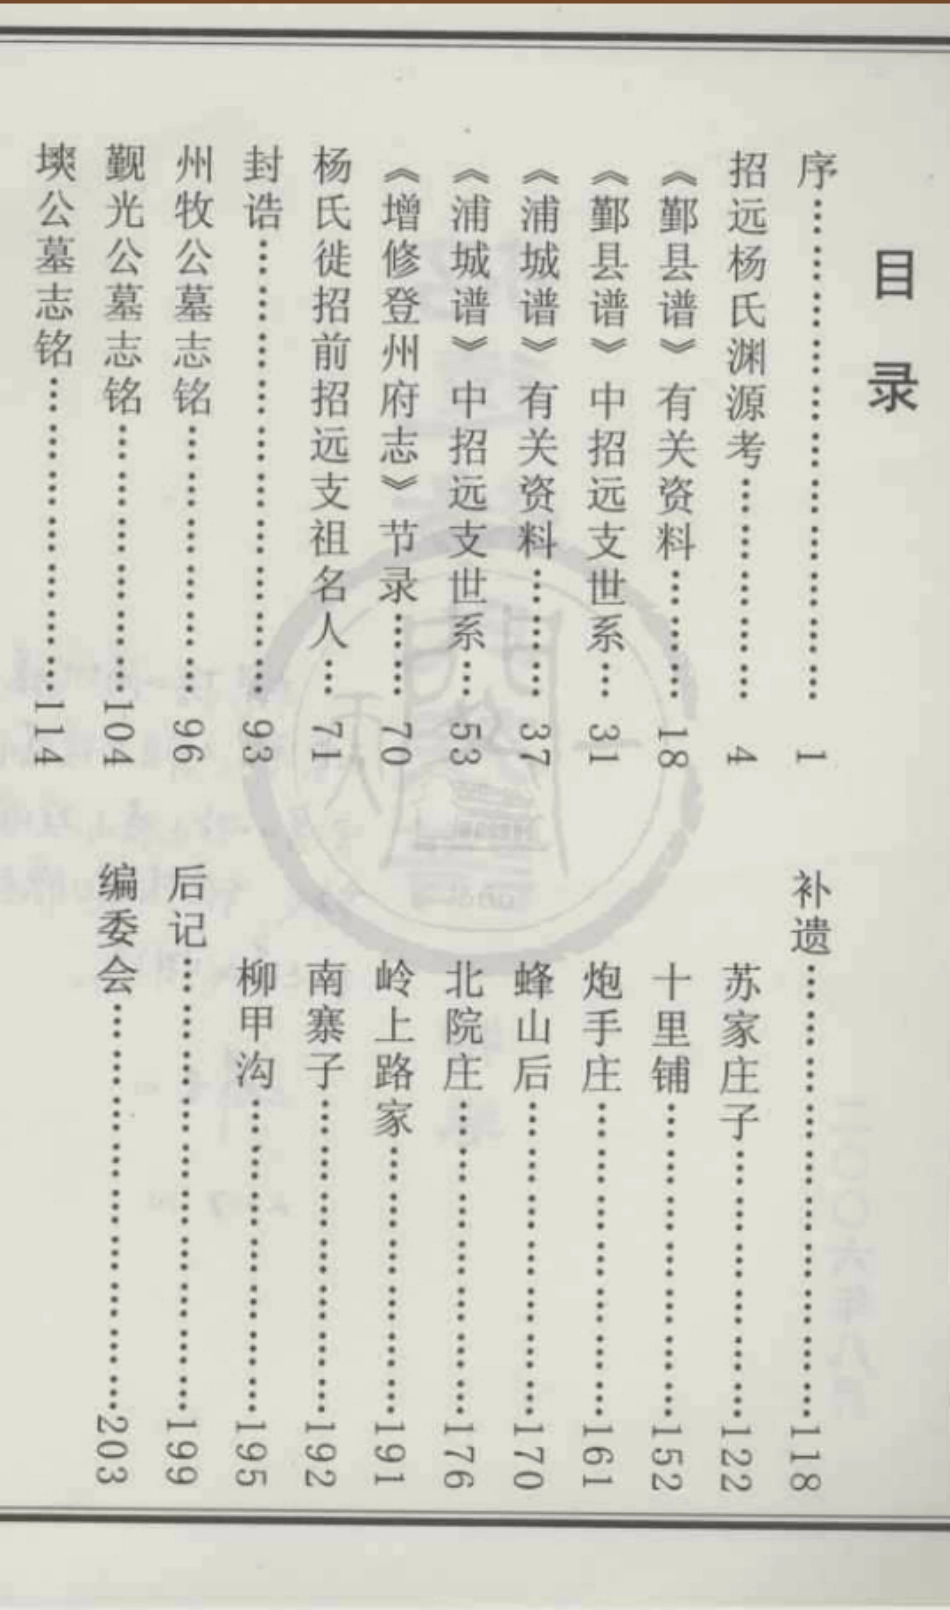 目录
序…………………………1
招远杨氏渊源考…………4
《鄞县谱》有关资料………18
《鄞县谱》中招远支世系…31
《浦城谱》有关资料………37
《浦城谱》中招远支世系…53
《增修登州府志》节录……70
杨氏徙招前招远支祖名人…71
封诰………………………93
州牧公墓志铭……………96
觐光公墓志铭……………104
塽公墓志铭………………114
补遗………………………118
苏家庄子…………………122
十里铺……………………152
炮手庄……………………161
蜂山后……………………170
北院庄……………………176
岭上路家…………………191
南寨子……………………192
柳甲沟……………………195
后记………………………199
编委会……………………203
二〇〇六年八月